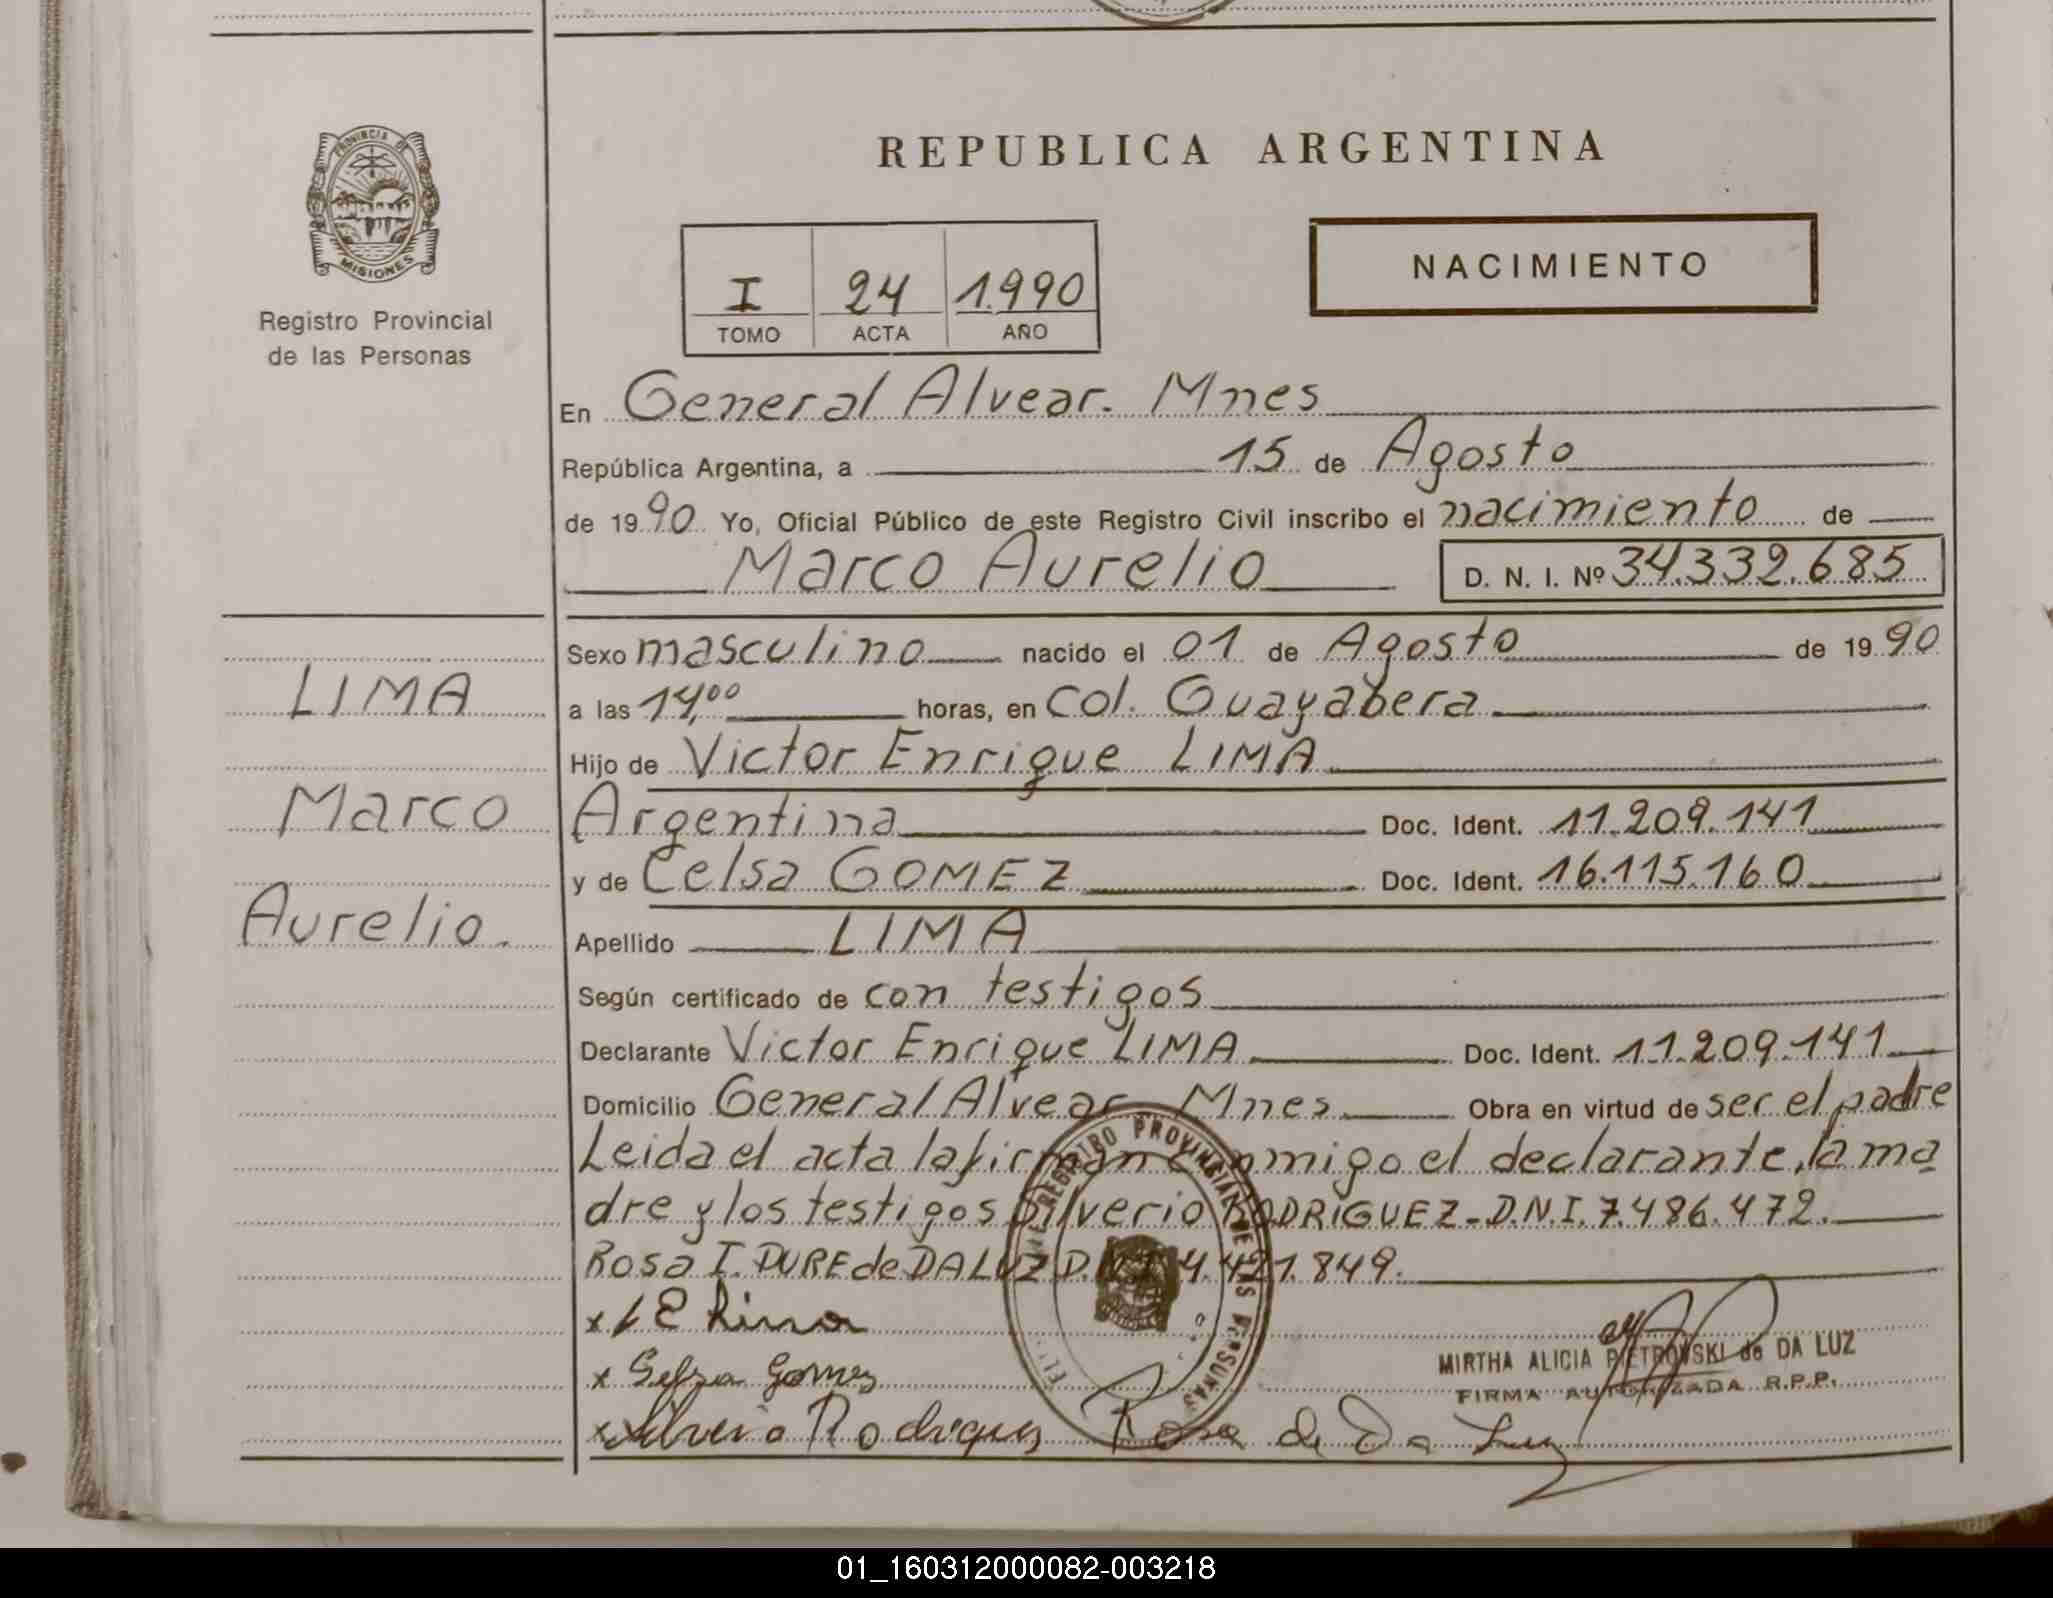 PROVINCIA DE
MISIONES
Registro Provincial
de las Personas
REPUBLICA ARGENTINA
I 24 1.990
TOMO ACTA AÑO
NACIMIENTO
En General Alvear. Mnes
República Argentina, a 15 de Agosto
de 19 90 Yo, Oficial Público de este Registro Civil inscribo el nacimiento de
Marco Aurelio D. N. I. Nº 34.332.685
Sexo masculino nacido el 01 de Agosto de 19 90
LIMA
a las 14,00 horas, en Col. Guayabera
Hijo de Victor Enrique LIMA
Marco
Argentina Doc. Ident. 11.209.141
y de Celsa GOMEZ Doc. Ident. 16.115.160
Aurelio.
Apellido LIMA
Según certificado de con testigos
Declarante Victor Enrique LIMA Doc. Ident. 11.209.141
Domicilio General Alvear Mnes Obra en virtud de ser el padre
Leida el acta la firman conmigo el declarante, la ma
dre y los testigos Silverio RODRIGUEZ-D.N.I. 7.486.472.
Rosa I. DURE de DA LUZ D.N.I. 4.421.849.
REGISTRO PROVINCIAL DE LAS PERSONAS
x
MIRTHA ALICIA PIETROVSKI de DA LUZ
x Selsa Gomez
FIRMA AUTORIZADA R.P.P.
x Silverio Rodriguez Rosa de Da Luz
01_160312000082-003218